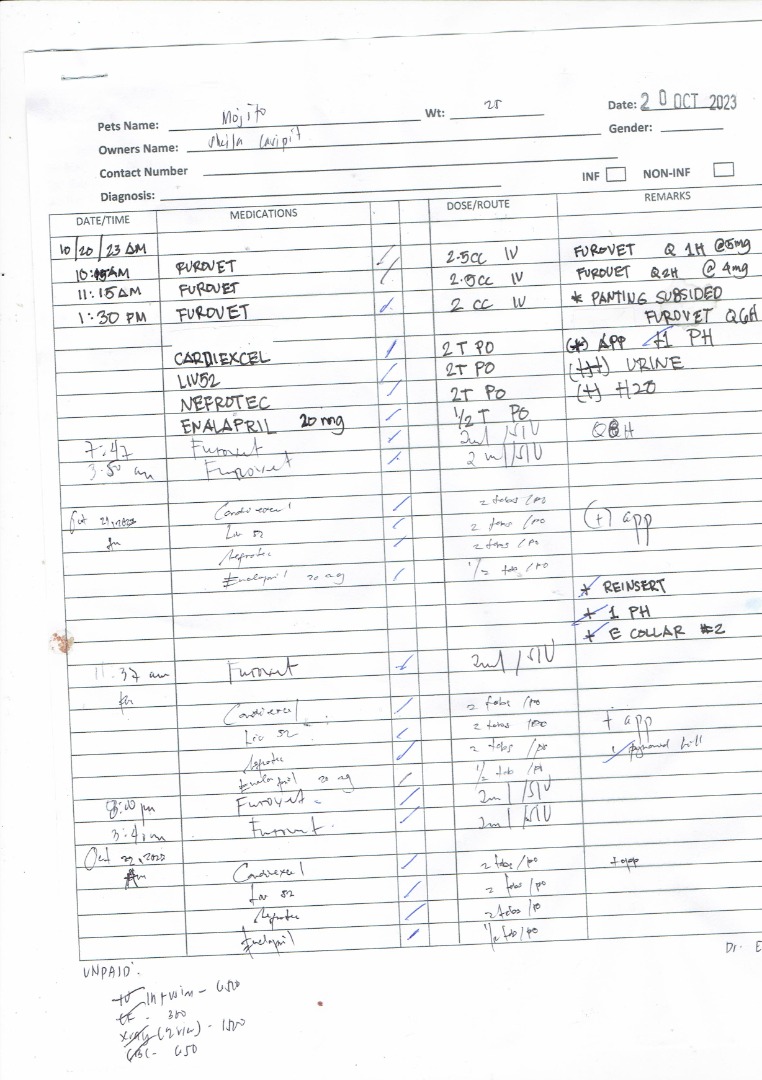 Pets Name: Mojito Wt: 25 Date: 20 OCT 2023
Owners Name: Gender:
Contact Number
Diagnosis: INF NON-INF
DATE/TIME MEDICATIONS DOSE/ROUTE REMARKS
10/20/23 AM
10:15AM FUROVET 2.5cc IV FUROVET Q 1H @5mg
11:15AM FUROVET 2.5cc IV FUROVET Q2H @ 4mg
1:30 PM FUROVET 2 cc IV * PANTING SUBSIDED
FUROVET Q6H
CARDIEXCEL 2T PO (+) APP +1 PH
LIV52 2T PO (++) URINE
NEFROTEC 2T PO (+) H20
ENALAPRIL 20mg 1/2 T PO
7:47 Furovet 2ml/SIV Q6H
3:50 am Furovet 2ml/SIV
Oct 21, Cardiexcel 2 tabs/PO
am Liv 52 2 tabs/PO (+) app
Nefrotec 2 tabs/PO
Enalapril 20 mg 1/2 tab/PO
* REINSERT
+ 1 PH
+ E COLLAR #2
11:37 am Furovet 2ml/SIV
pm Cardiexcel 2 tabs/PO
Liv 52 2 tabs/PO + app
Nefrotec 2 tabs/PO bill
Enalapril 20 mg 1/2 tab/PO
8:00 pm Furovet 2ml/SIV
3:41 am Furovet 2ml/SIV
Oct 22, Cardiexcel 2 tabs/po + app
Am Liv 52 2 tabs/po
Nefrotec 2 tabs/po
Enalapril 1/2 tab/po
Dr. E
UNPAID:
- 300
xray (2view) - 1500
CBC - 650